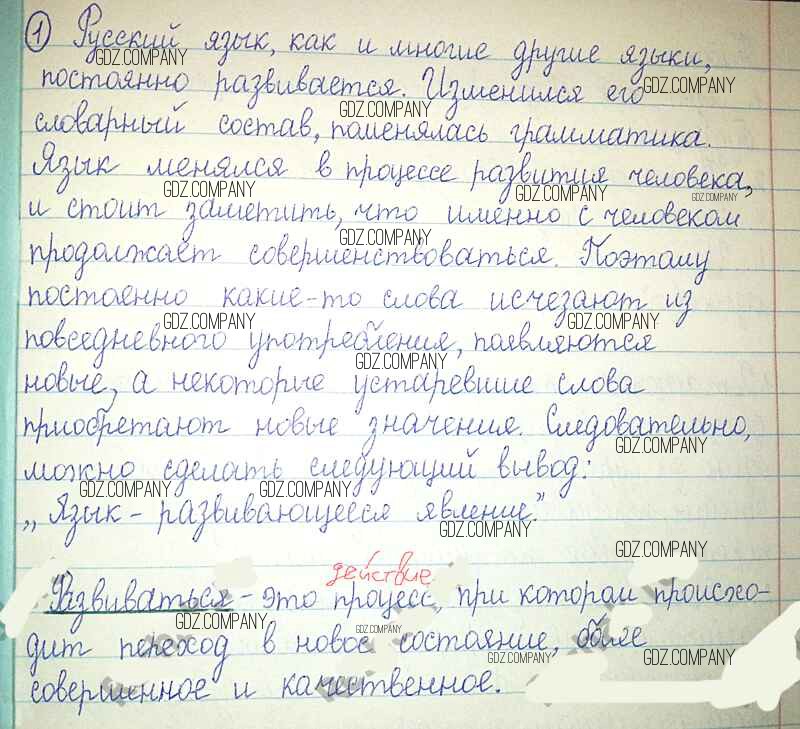 ① Русский язык, как и многие другие языки,
постоянно развивается. Изменился его
словарный состав, поменялась грамматика.
Язык менялся в процессе развития человека,
и стоит заметить, что именно с человеком
продолжает совершенствоваться. Поэтому
постоенно какие-то слова исчезают из
повседневного употребления, появляются
новые, а некоторые устаревшие слова
приобретают новые значения. Следовательно,
можно сделать следующий вывод:
„Язык - развивающееся явление".
действие
Развиваться - это процесс, при котором происхо-
дит переход в новое состояние, более
совершенное и качественное.
GDZ.COMPANY